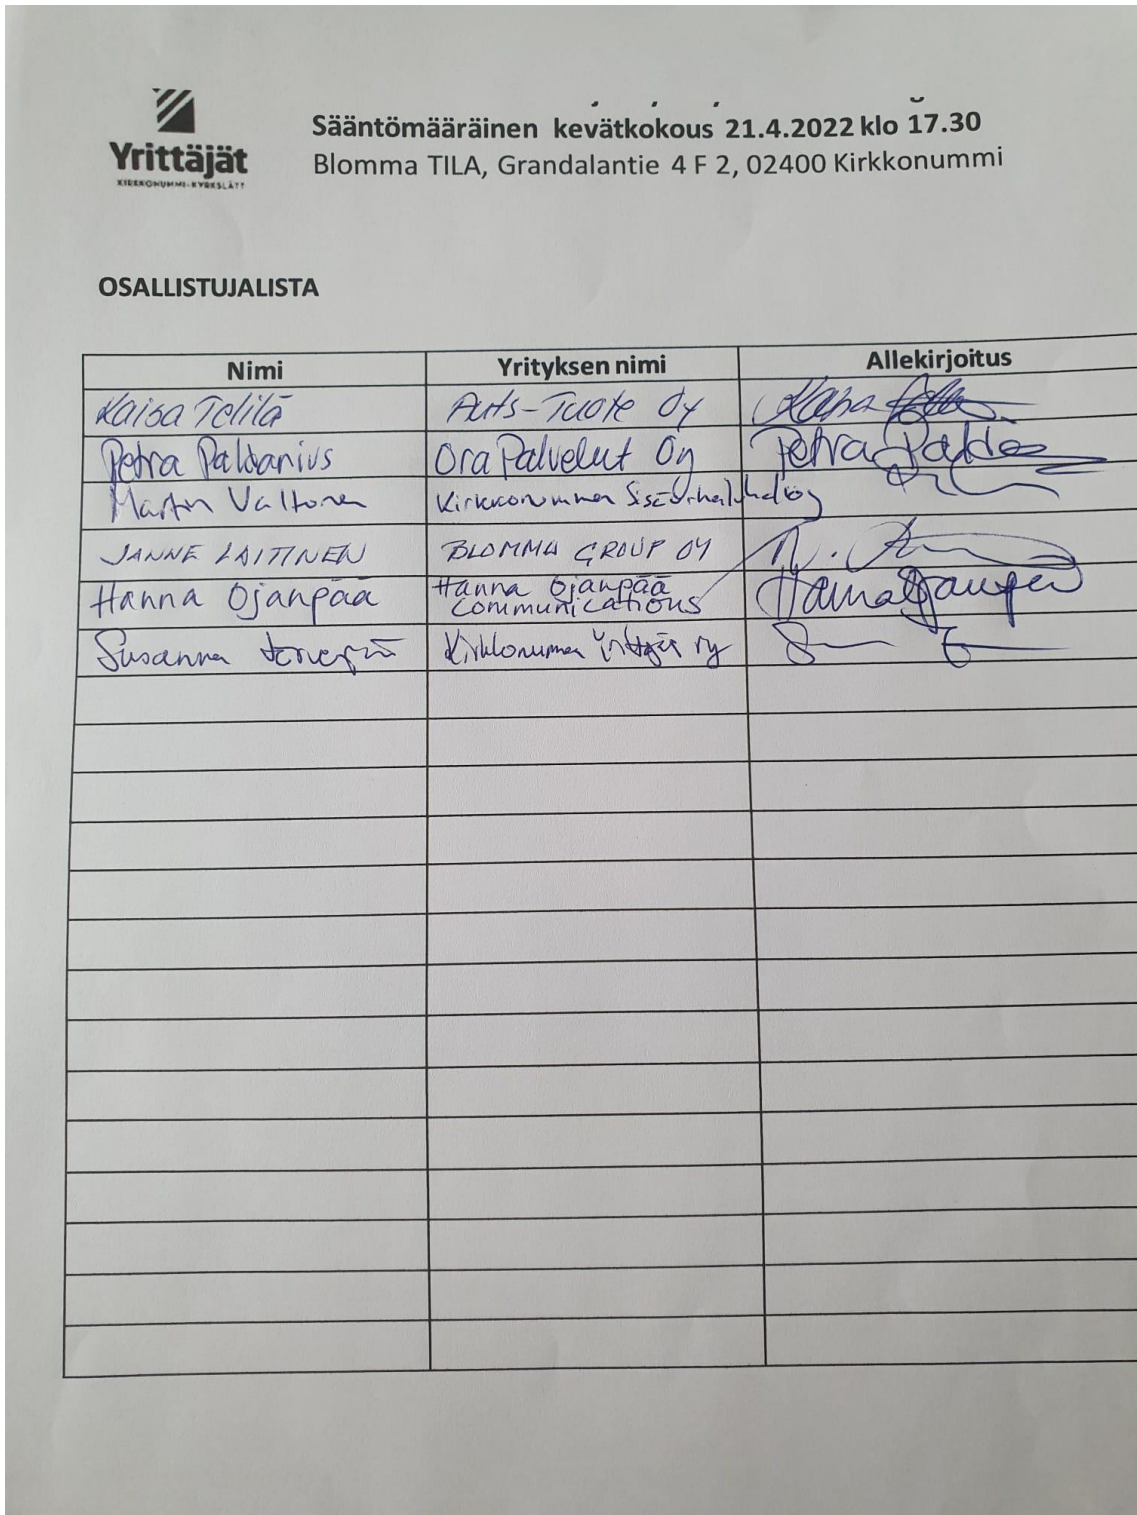 Yrittäjät
KIRKKONUMMI-KYRKSLÄTT
Sääntömääräinen kevätkokous 21.4.2022 klo 17.30
Blomma TILA, Grandalantie 4 F 2, 02400 Kirkkonummi
OSALLISTUJALISTA
Nimi Yrityksen nimi Allekirjoitus
Kaisa Telilä -Tuote Oy Kaisa
Petra Paldanius Ora Palvelut Oy Petra
Martin Valtonen Kirkkonummen
JANNE LAITINEN BLOMMA GROUP OY
Hanna Ojanpää Hanna Ojanpää
Communications Hanna Ojanpää
Susanna Kirkkonummen Yrittäjät ry